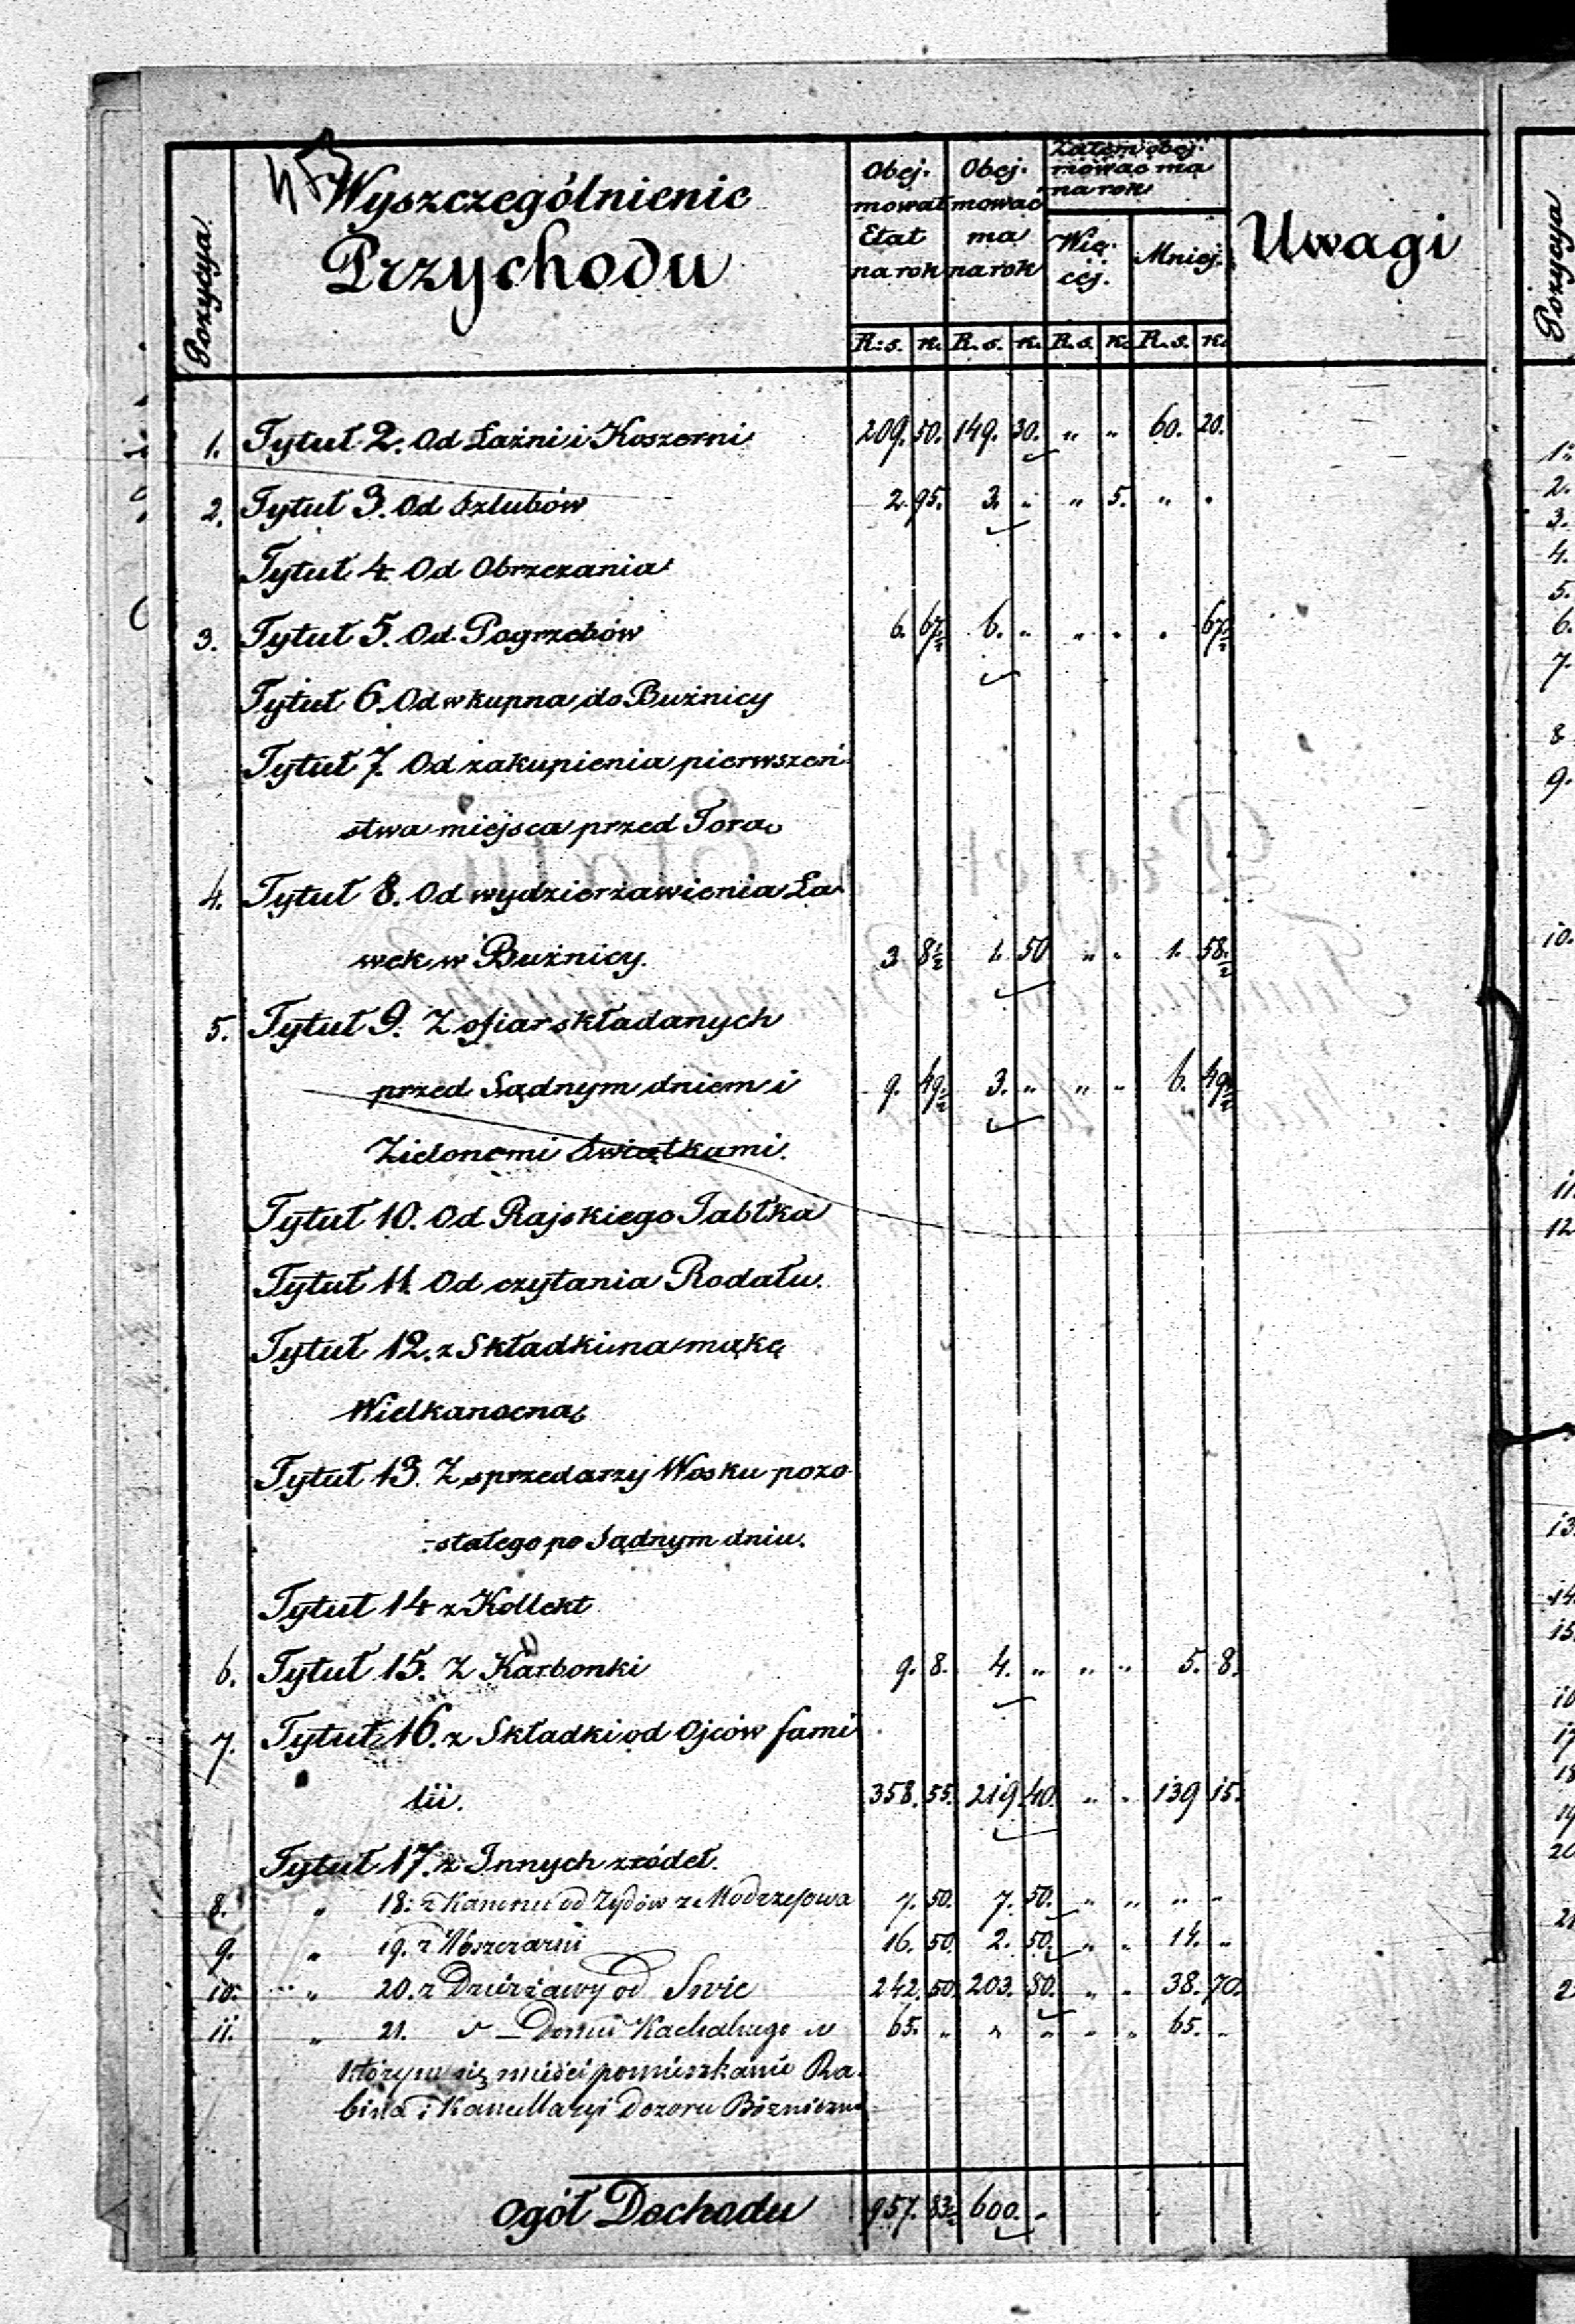 Pozycya.
Wyszczególnienie
Przychodu
Obej-
mował
Etat
na rok
Obej-
mować
ma
na rok
Zatem obej-
mować ma
na rok
Wię-
cej.
Mniej.
Uwagi
Pozycya
R:s. k. R.s. k. R.s. k. R.s. k.
1. Tytuł 2. Od Łaźni i Koszerni 209. 50. 149. 30. " " 60. 20.
2. Tytuł 3. Od Szlubów 2. 95. 3. " " 5. " "
Tytuł 4. Od Obrzezania
3. Tytuł 5. Od Pogrzebów 6. 67½ 6. " " " " 67½
Tytuł 6. Od wkupna do Bużnicy
Tytuł 7. Od zakupienia pierwszeń-
stwa miejsca przed Torą
4. Tytuł 8. Od wydzierżawienia Ła-
wek w Bużnicy. 3 8½ 1. 50 " " 1. 58½
5. Tytuł 9. Z ofiar składanych
przed Sądnym dniem i 9. 49½ 3. " " " 6. 49½
Zielonemi Świątkami.
Tytuł 10. Od Rajskiego Jabłka
Tytuł 11. Od czytania Rodału.
Tytuł 12. z Składki na mąkę
Wielkanocną
Tytuł 13. Z sprzedarzy Wosku pozo-
-stałego po Sądnym dniu.
Tytuł 14 z Kollekt
6. Tytuł 15. Z Karbonki 9. 8. 4. " " " 5. 8.
7. Tytuł 16. z Składki od Ojców fami
lii. 358. 55. 219. 40. " " 139 15.
Tytuł 17. z Innych zródeł.
8. " 18: z Kanonu od Żydów z Modrzejowa 7. 50. 7. 50. " " " "
9. " 19. z 16. 50. 2. 50. " " 14. "
10. " 20. z Dzierżawy od 242. 50. 203. 80. " " 38. 70.
11. " 21. " Domu Kachalnego w 65. " " " " " 65. "
którym się mieści pomieszkanie Ra-
bina i Kancellaryi Dozoru Bóżniczn
Ogół Dochodu 957. 83½ 600. "
1.
2.
3.
4.
5.
6.
7.
8
9.
10.
11.
12
13.
14.
15.
16
17
18
19
20
21
2